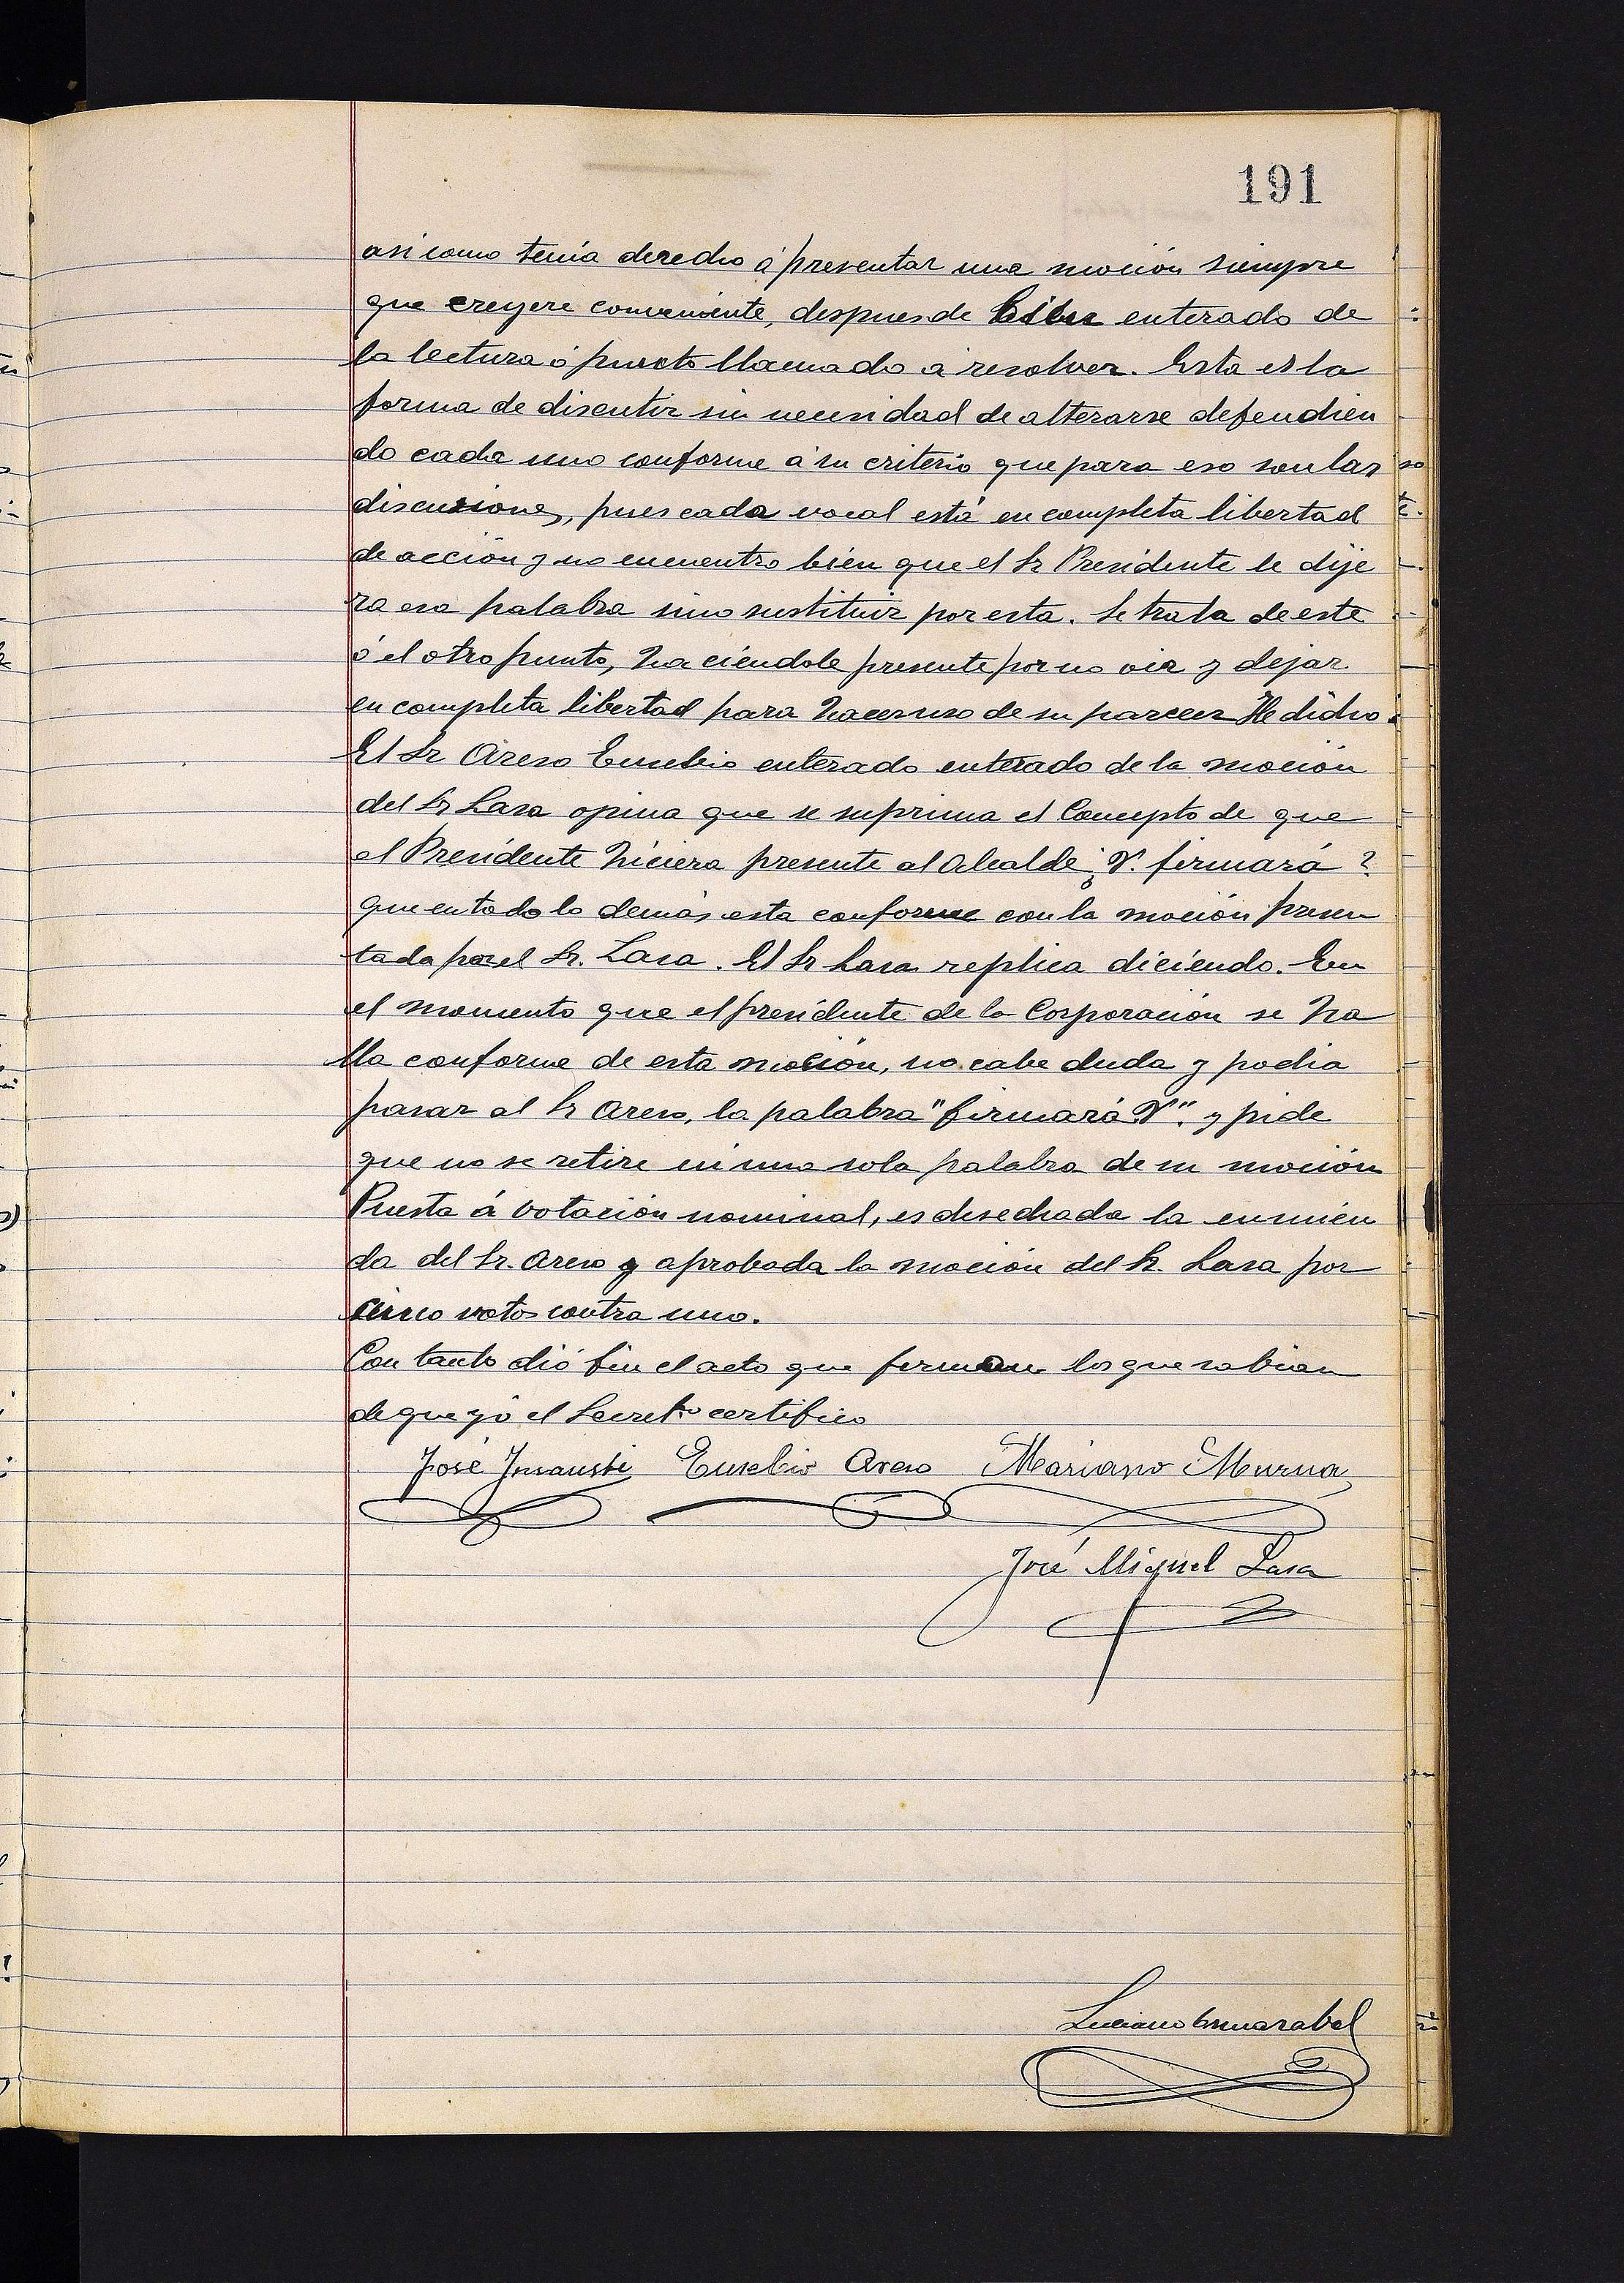 191
asi como tenía derecho á presentar una moción siempre
que creyere conveniente, despues de enterado de
la lectura ó puncto llamado á resolver. Esta es la
forma de discutir sin necesidad de alterarse defendien
do cada uno conforme á su criterio que para eso son las
discusiones, pues cada vocal está en completa libertad
de acción y no encuentro bién que el Sr Presidente le dije
ra esa palabra sino sustituir por esta. Se trata de este
ó el otro punto, haciéndole presente por no oir y dejar
en completa libertad para hacer uso de su parecer He dicho.
El Sr Areso Eusebio enterado enterado de la moción
del Sr Lasa opina que se suprima el Concepto de que
el Presidente hiciera presente al Alcalde ¿V. firmará?
que en todo lo demás esta conforme con la moción presen
tada por el Sr. Lasa. El Sr Lasa replica diciendo. En
el momento que el presidente de la Corporación se ha
lla conforme de esta moción, no cabe duda y podia
pasar al Sr Areso, la palabra "firmará V". y pide
que no se retire ni una sola palabra de su moción
Puesta á votación nominal, es desechada la enmién
da del Sr. Areso y aprobada la moción del Sr. Lasa por
cinco votos contra uno.
Con tanto dió fin el acto que firman los que sabian
de que yó el Secretº certifico
José Insausti Eusebio Areso Mariano Murua
José Miguel Lasa
Luciano